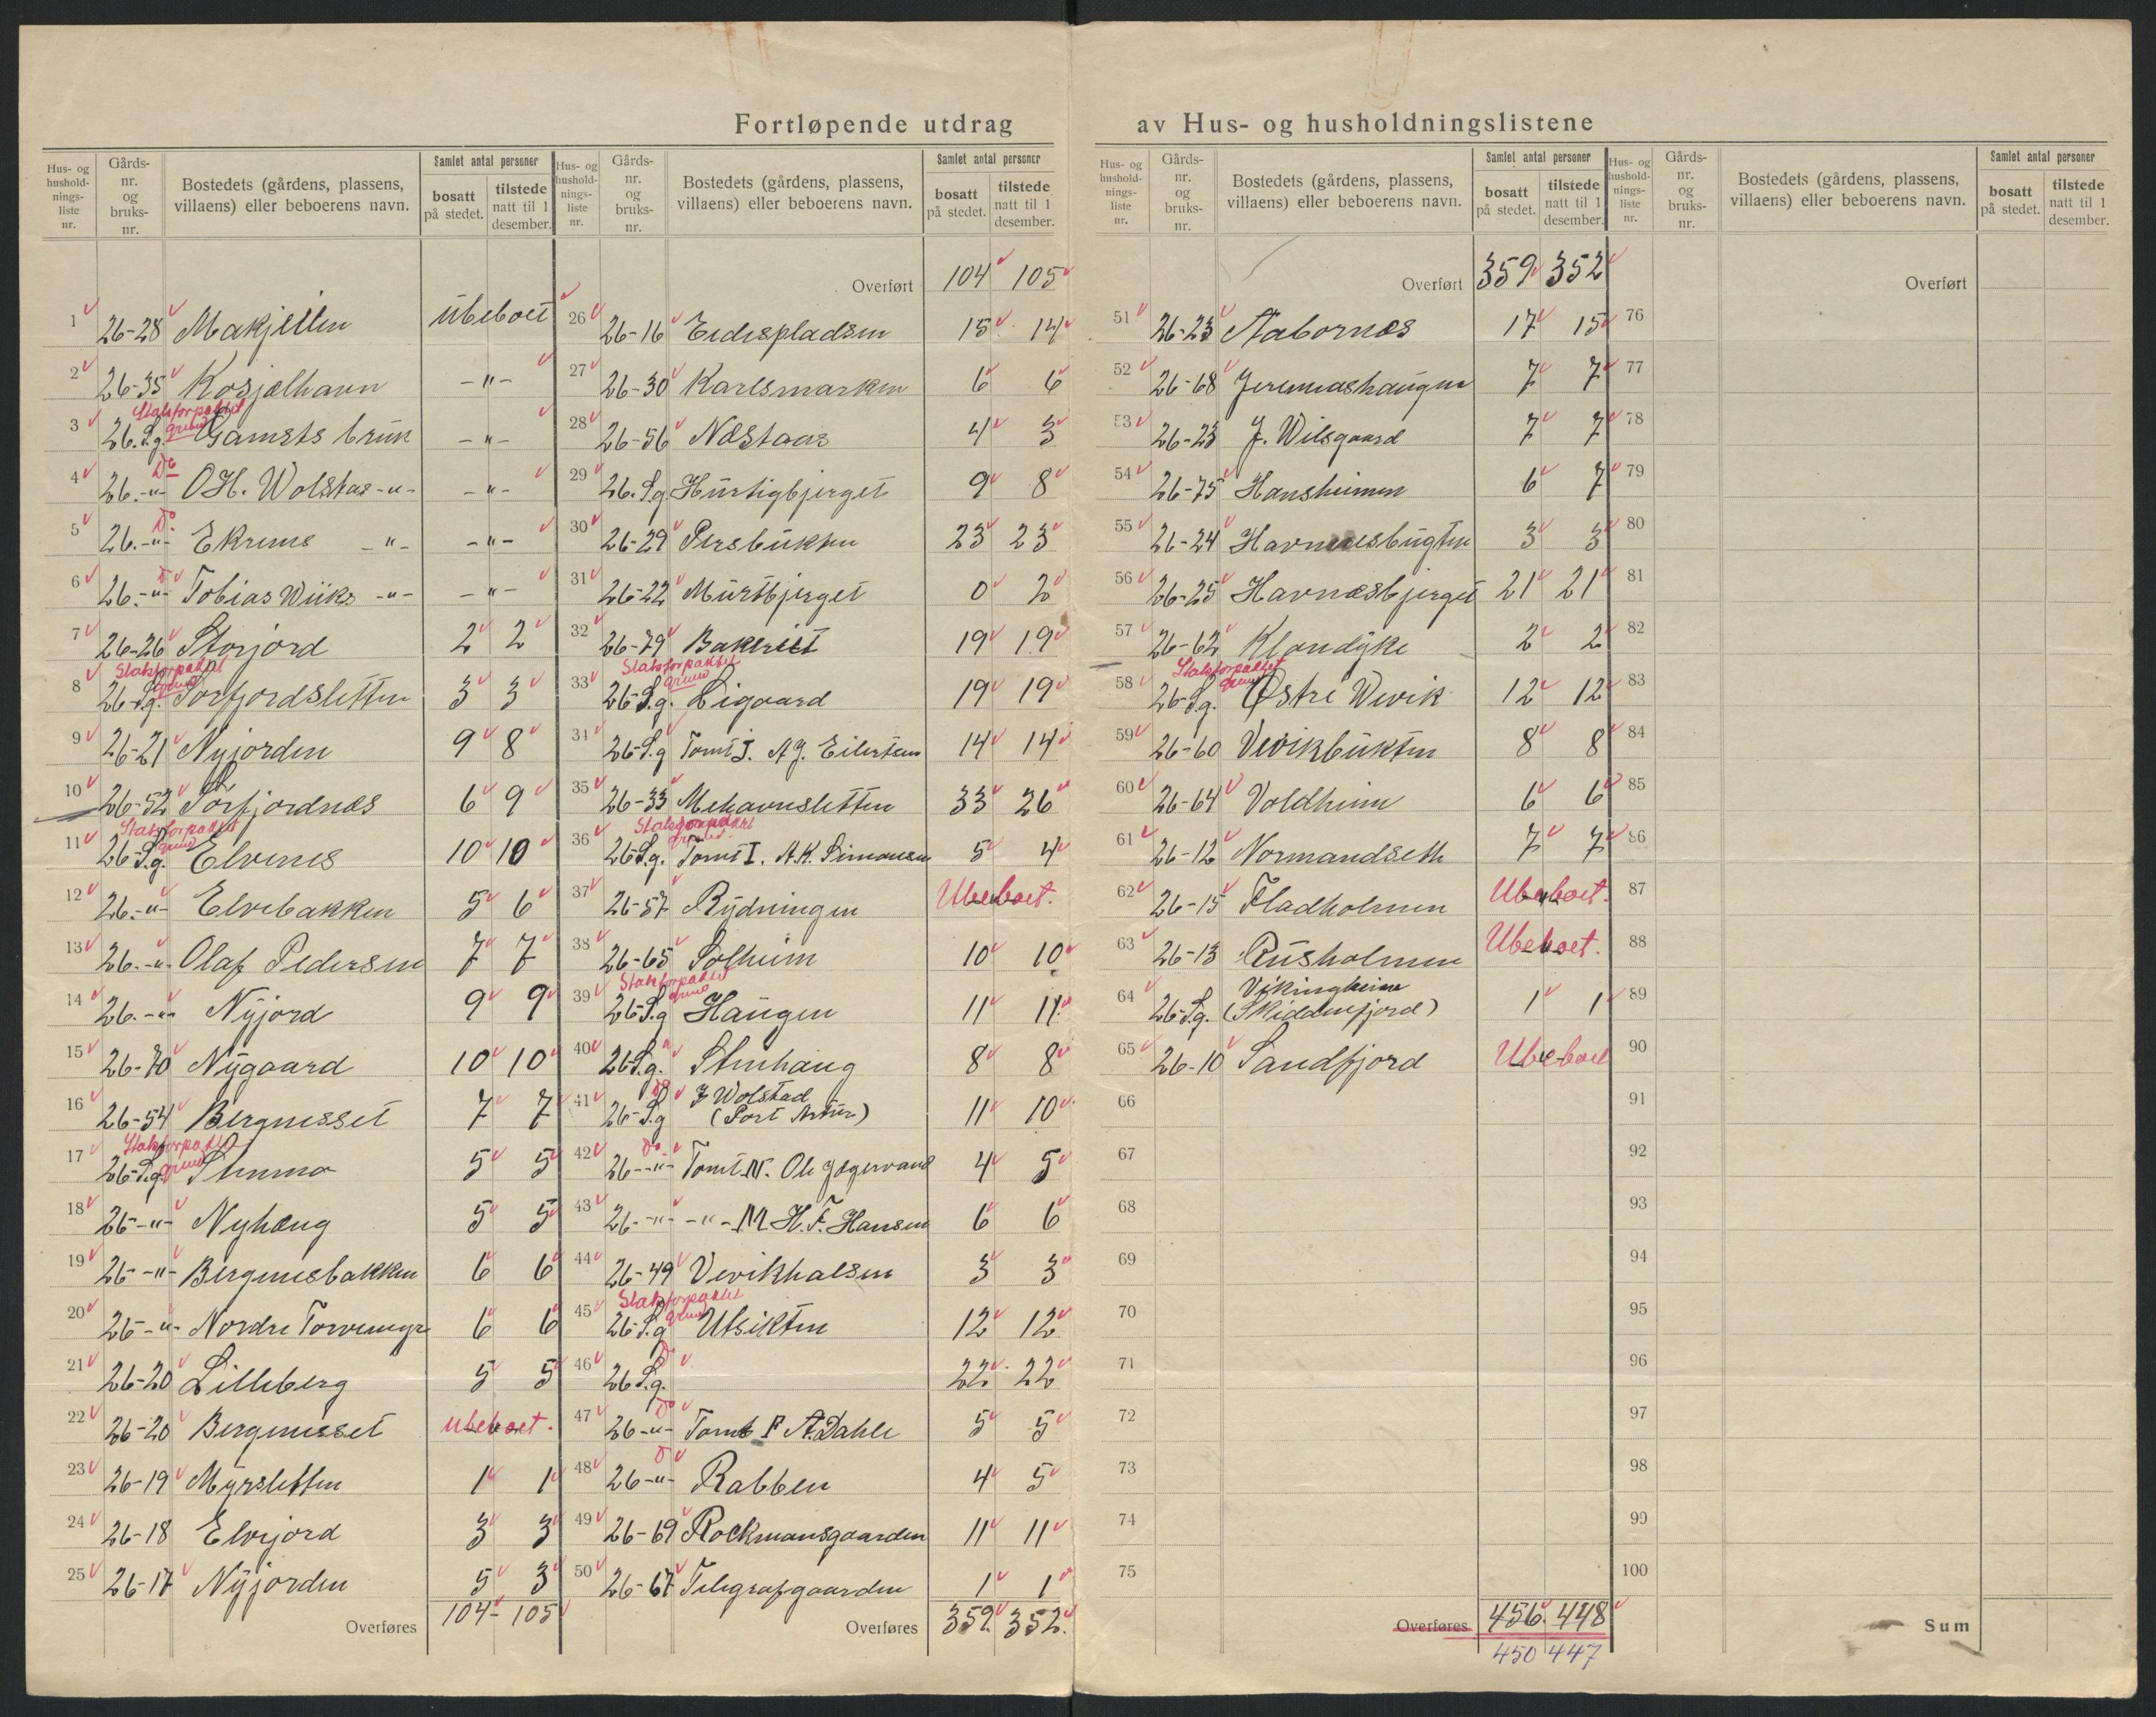 Fortløpende utdrag av Hus- og husholdningslistene
Hus- og husholdnings-liste nr. | Gårds-nr. og bruks-nr. | Bostedets (gårdens, plassens, villaens) eller beboerens navn. | Samlet antal personer | bosatt på stedet. | tilstede natt til 1 desember.
1 26-28 Makjellen ubeboet
2 26-35 Kosjælhavn -"-
3 26.S.g. Statsforpaktet grund Gamsts bruk -"-
4 26.-"- Do O.H. Wolstas -"- -"-
5 26.-"- Do Ekrems -"- -"-
6 26.-"- Do Tobias Wiiks -"- -"-
7 26-26 Storjord 2 2
8 26-S.g. Statsforpaktet grund Sorfjordsletten 3 3
9 26-21 Nyjorden 9 8
10 26-52 Sorfjordnæs 6 9
11 26-S.g. Statsforpaktet grund Elvenes 10 10
12 26.-"- Elvebakken 5 6
13 26.-"- Olaf Pedersen 7 7
14 26.-"- Nyjord 9 9
15 26-70 Nygaard 10 10
16 26-54 Bergnesset 7 7
17 26-S.g. Statsforpaktet grund Stenmo 5 5
18 26-"- Nyhaug 5 5
19 26-"- Bergnesbakken 6 6
20 26-"- Nordre Torvemyr 6 6
21 26-20 Lilleberg 5 5
22 26-20 Bergnesset ubeboet.
23 26-19 Myrsletten 1 1
24 26-18 Elvejord 3 3
25 26-17 Nyjorden 5 3
Overføres 104- 105
Overført 104 105
26 26-16 Eidespladsen 15 14
27 26-30 Karlsmarken 6 6
28 26-56 Næstaas 4 3
29 26.S.g Hurtigbjerget 9 8
30 26-29 Persbukten 23 23
31 26-22 Murtbjerget 0 2
32 26-79 Bakeriet 19 19
33 26-S.g. Statsforpaktet grund Ligaard 19 19
34 26-S.g Tomt J. A.J. Eilertsen 14 14
35 26-33 Mehavnsletten 33 26
36 26-S.g. grund. Tomt I. A.K. Simonsen 5 4
37 26-57 Rydningen Ubeboet.
38 26-65 Solheim 10 10
39 26-S.g Statsforpaktet grund Haugen 11 11
40 26-S.g. Stenhaug 8 8
41 26-S.g Do J Wolstad (Port Artur) 11 10
42 26-"- Do Tomt N. Ole Jægervand 4 5
43 26-"- -"- M. H.F. Hansen 6 6
44 26-49 Vevikhalsen 3 3
45 26-S.g Statsforpaktet grund Utsikten 12 12
46 26 S.g. Do 22 22
47 26-"- Do Tomt F A. Dahle 5 5
48 26-"- Do Rabben 4 5
49 26-69 Rockmansgaarden 11 11
50 26-67 Telegrafgaarden 1 1
Overføres 359. 352.
Overført 359 352
51 26-23 Aabornæs 17 15
52 26-68 Jeremiashaugen 7 7
53 26-23 J. Wilsgaard 7 7
54 26-75 Hansheimen 6 7
55 26-24 Havnnesbugten 3 3
56 26-25 Havnæsbjerget 21 21
57 26-62 Klondyke 2 2
58 26-S.g. Statsforpaktet grund Østre Wevik 12 12
59 26-60 Vevikbukten 8 8
60 26-64 Voldheim 6 6
61 26-12 Normandseth 7 7
62 26-15 Fladholmen Ubeboet.
63 26-13 Rusholmen Ubeboet.
64 26-S.g. Vikingheim (Skiddenfjord) 1 1
65 26-10 Sandfjord Ubeboet
66
67
68
69
70
71
72
73
74
75
Overføres 456. 448
450 447
Overført
76
77
78
79
80
81
82
83
84
85
86
87
88
89
90
91
92
93
94
95
96
97
98
99
100
Sum